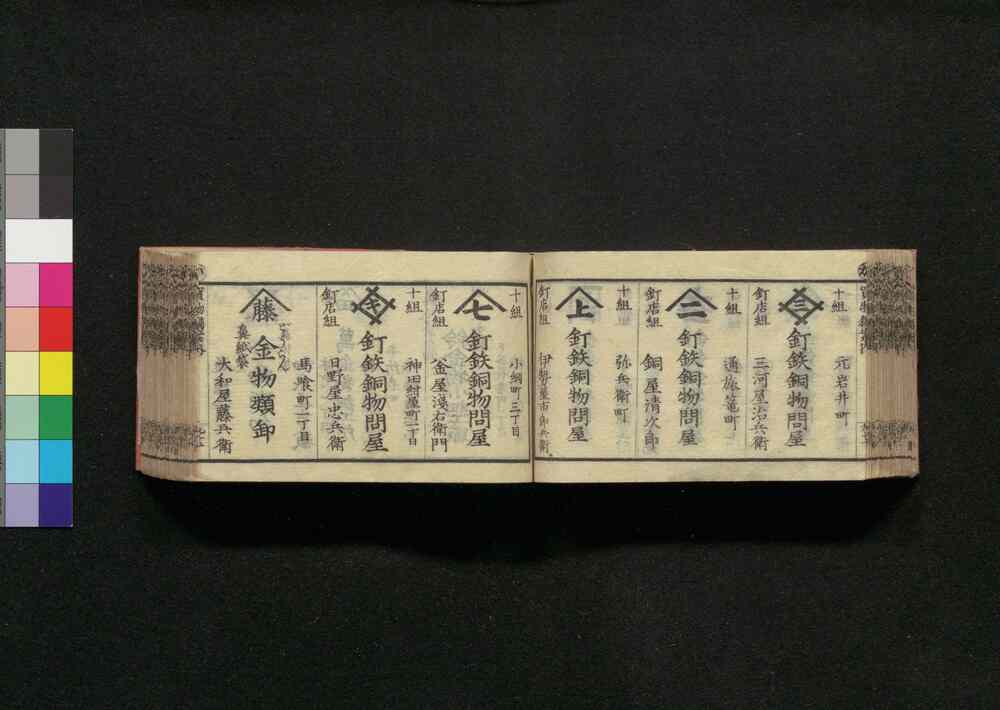 十組
元岩井町
三
釘鉄銅物問屋
釘店組
三河屋治兵衛
十組
通旅篭町
二
釘鉄銅物問屋
釘店組
銅屋清次郎
十組
弥兵衛町
上
釘鉄銅物問屋
釘店組
伊勢屋市郎兵衛
十組
小網町三丁目
七
釘鉄銅物問屋
釘店組
釜屋浅右衛門
十組
神田鍋町二丁目
釘鉄銅物問屋
釘店組
日野屋忠兵衛
馬喰町一丁目
藤
金物類卸
大和屋藤兵衛